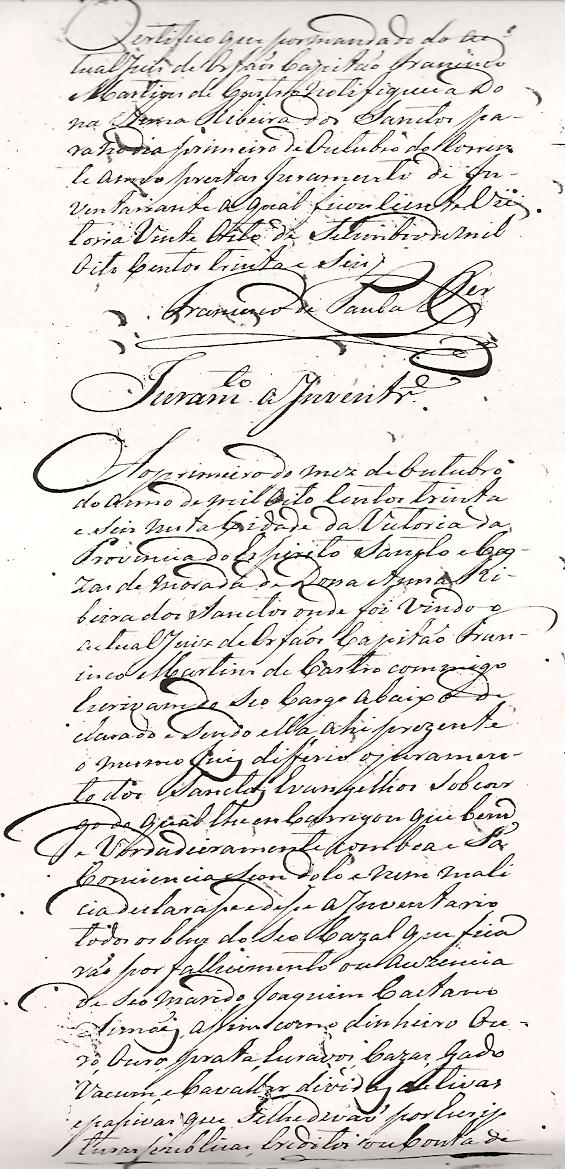 Certifico que por mandado do ac
tual Juis de Orfaõs Capitaõ Francisco
Martins de Castro notifiquei a Do
na Anna Ribeira dos Sanctos pa-
ra no dia primeiro de Outubro do Corren
te anno prestar Juramento de In-
ventariante a qual ficou siente Vic
toria Vinte Oito de Setembro de mil
Oito Centos trinta e Seis
Francisco de Paula
Juramto. a Inventre.
Ao primeiro do mez de Outubro
do anno de mil Oito Centos trinta
e seis nesta Cidade da Victoria da
Provincia do Espirito Sancto e Ca-
zas de morada de Dona Anna Ri-
beira dos Sanctos onde foi vindo o
actual Juis de Orfaõs Capitaõ Fran-
cisco Martins de Castro commigo
Escrivam do Seo Cargo abaixo de
clarado e sendo ella ahi prezente
o mesmo Juiz diferio o juramen-
to dos Sanctos Evangelhos sob car
go do qual lhe encarregou que bem
e Verdadeiramente com boa e Sã
Conciencia sem dolo e nem mali
cia declarase e dese a Inventario
todos os bens do Seo Cazal que fica
rão por fallecimento ou auzencia
de Seo marido Joaquim Caetano
Simões, assim como dinheiro Ou-
ro, Ouro, prata, Escravos Cazas, Gado
Vacum, e Cavallar dividas activas
e pasivas que Se lhe devaõ por Escrip
turas publicas, Creditos ou Conta de